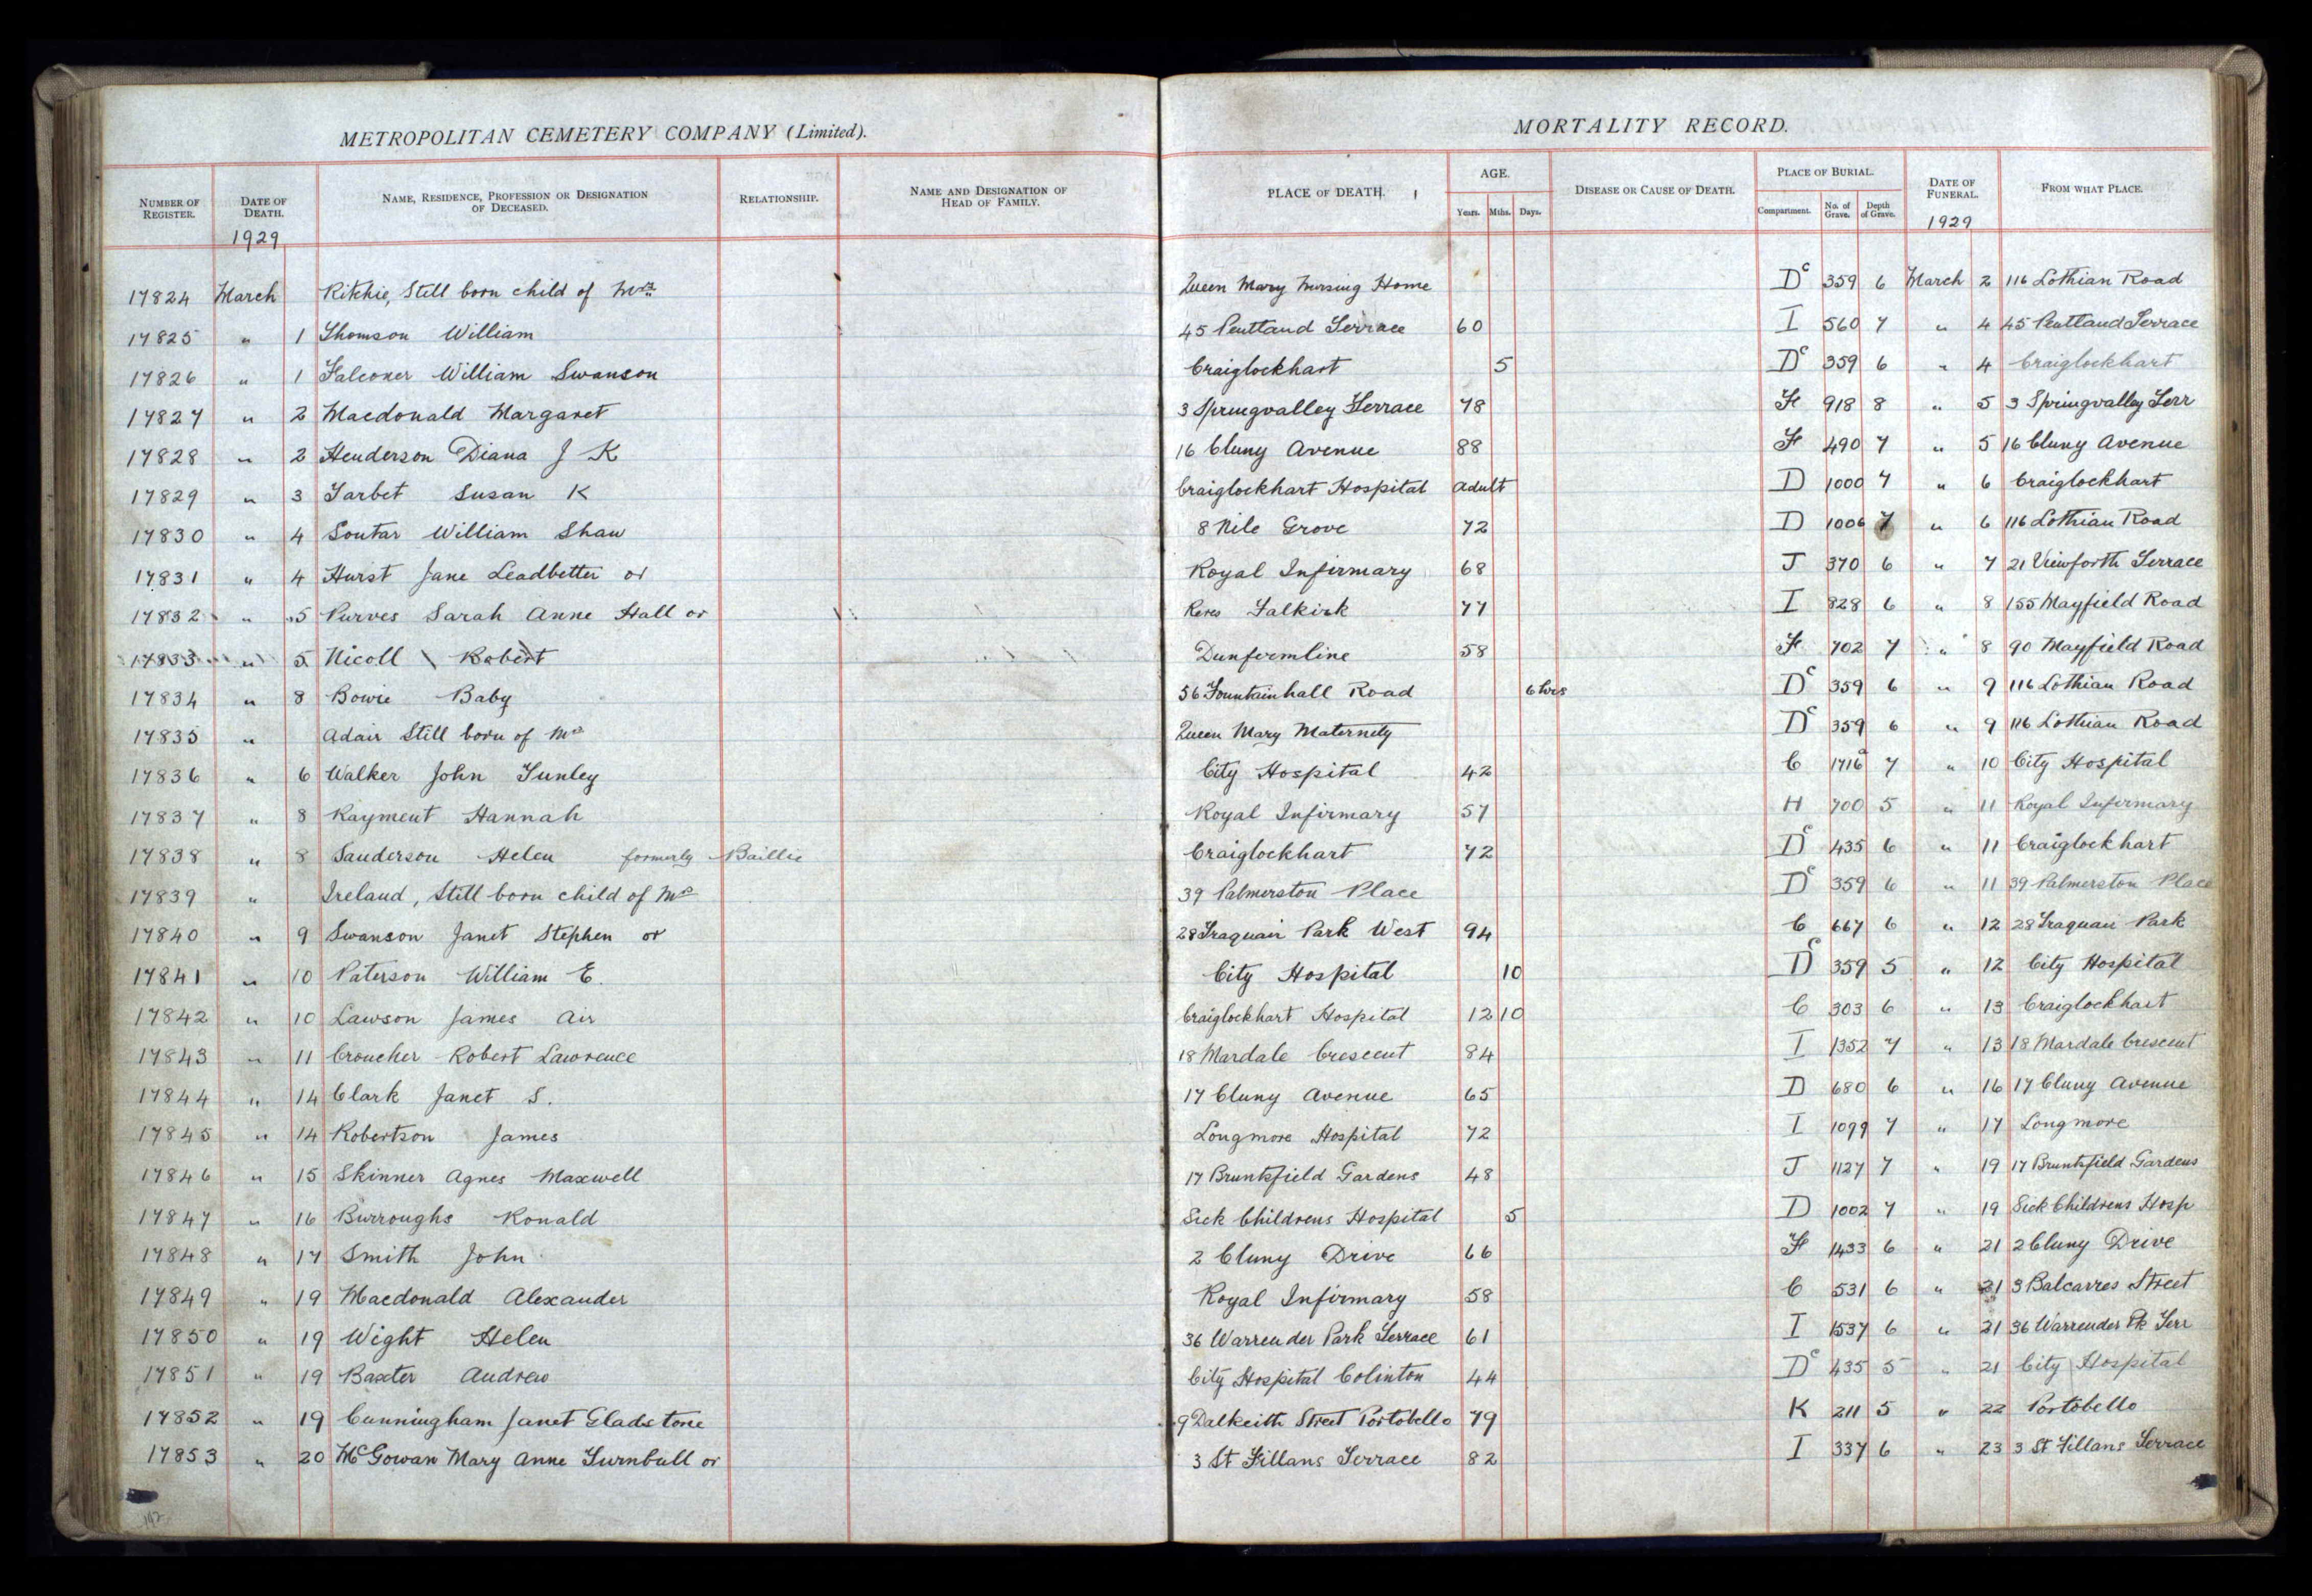 METROPOLITAN CEMETERY COMPANY (Limited).
MORTALITY RECORD.
NUMBER OF REGISTER. DATE OF DEATH. NAME, RESIDENCE, PROFESSION OR DESIGNATION OF DECEASED. RELATIONSHIP. NAME AND DESIGNATION OF HEAD OF FAMILY. PLACE OF DEATH. AGE. Years. Mths. Days. DISEASE OR CAUSE OF DEATH. PLACE OF BURIAL. Compartment. No. of Grave. Depth of Grave. DATE OF FUNERAL. FROM WHAT PLACE.
1929 1929
17824 March Ritchie, Still born child of Mrs Queen Mary Nursing Home Dc 359 6 March 2 116 Lothian Road
17825 " 1 Thomson William 45 Pentland Terrace 60 I 560 7 " 4 45 Pentland Terrace
17826 " 1 Falconer William Swanson Craiglockhart 5 Dc 359 6 " 4 Craiglockhart
17827 " 2 Macdonald Margaret 3 Springvalley Terrace 78 F 918 8 " 5 3 Springvalley Terr
17828 " 2 Henderson Diana J K 16 Cluny Avenue 88 F 490 7 " 5 16 Cluny Avenue
17829 " 3 Tarbet Susan K Craiglockhart Hospital adult D 1000 7 " 6 Craiglockhart
17830 " 4 Soutar William Shaw 8 Nile Grove 72 D 1006 7 " 6 116 Lothian Road
17831 " 4 Hurst Jane Leadbetter or Royal Infirmary 68 J 370 6 " 7 21 Viewforth Terrace
17832 " 5 Purves Sarah Anne Hall or Falkirk 77 I 828 6 " 8 155 Mayfield Road
17833 " 5 Nicoll Robert Dunfermline 58 F 702 7 " 8 90 Mayfield Road
17834 " 8 Bowie Baby 56 Fountainhall Road 6 hrs Dc 359 6 " 9 116 Lothian Road
17835 " Adair Still born of Mrs Queen Mary Maternity Dc 359 6 " 9 116 Lothian Road
17836 " 6 Walker John Tunley City Hospital 42 C 1716a 7 " 10 City Hospital
17837 " 8 Rayment Hannah Royal Infirmary 57 H 700 5 " 11 Royal Infirmary
17838 " 8 Sanderson Helen formerly Baillie Craiglockhart 72 Dc 435 6 " 11 Craiglockhart
17839 " Ireland, Still born child of Mrs 39 Palmerston Place Dc 359 6 " 11 39 Palmerston Place
17840 " 9 Swanson Janet Stephen or 28 Traquair Park West 94 C 667 6 " 12 28 Traquair Park
17841 " 10 Paterson William E. City Hospital 10 Dc 359 5 " 12 City Hospital
17842 " 10 Lawson James Air Craiglockhart Hospital 12 10 C 303 6 " 13 Craiglockhart
17843 " 11 Croucher Robert Lawrence 18 Mardale Crescent 84 I 1352 7 " 13 18 Mardale Crescent
17844 " 14 Clark Janet S. 17 Cluny Avenue 65 D 680 6 " 16 17 Cluny Avenue
17845 " 14 Robertson James Longmore Hospital 72 I 1099 7 " 17 Longmore
17846 " 15 Skinner Agnes Maxwell 17 Bruntsfield Gardens 48 J 1127 7 " 19 17 Bruntsfield Gardens
17847 " 16 Burroughs Ronald Sick Childrens Hospital 5 D 1002 7 " 19 Sick Childrens Hosp
17848 " 17 Smith John 2 Cluny Drive 66 F 1433 6 " 21 2 Cluny Drive
17849 " 19 Macdonald Alexander Royal Infirmary 58 C 531 6 " 21 3 Balcarres Street
17850 " 19 Wight Helen 36 Warrender Park Terrace 61 I 1537 6 " 21 36 Warrender Pk Terr
17851 " 19 Baxter Andrew City Hospital Colinton 44 Dc 435 5 " 21 City Hospital
17852 " 19 Cunningham Janet Gladstone 9 Dalkeith Street Portobello 79 K 211 5 " 22 Portobello
17853 " 20 McGowan Mary Anne Turnbull or 3 St Fillans Terrace 82 I 337 6 " 23 3 St Fillans Terrace